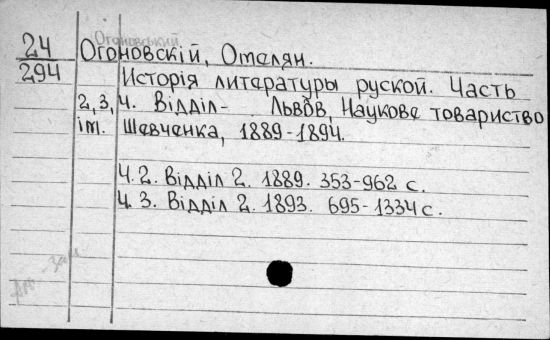 Огоновський
24 Огоновскій, Омелян.
294 Исторія литературы руской. Часть
2,3, 4. Відділ- Львôв, Наукове товариство
ім. Шевченка, 1889-1894.
Ч.2. Відділ 2. 1889. 353-962 с.
Ч. 3. Відділ 2. 1893. 695-1334 с.